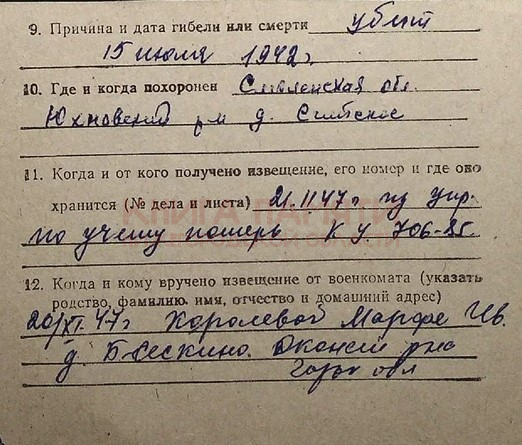 9. Причина и дата гибели или смерти убит
15 июля 1942 г.
10. Где и когда похоронен Смоленская обл.
Юхновский р-н д.
11. Когда и от кого получено извещение, его номер и где оно
хранится (№ дела и листа) 21.11.47 г. из Упр.
по учету потерь К У. 706-
КНИГА ПАМЯТИ
12. Когда и кому вручено извещение от военкомата (указать
родство, фамилию, имя, отчество и домашний адрес)
20/XI.47 г. Королевой Марфе Ив.
д.
Горьк обл